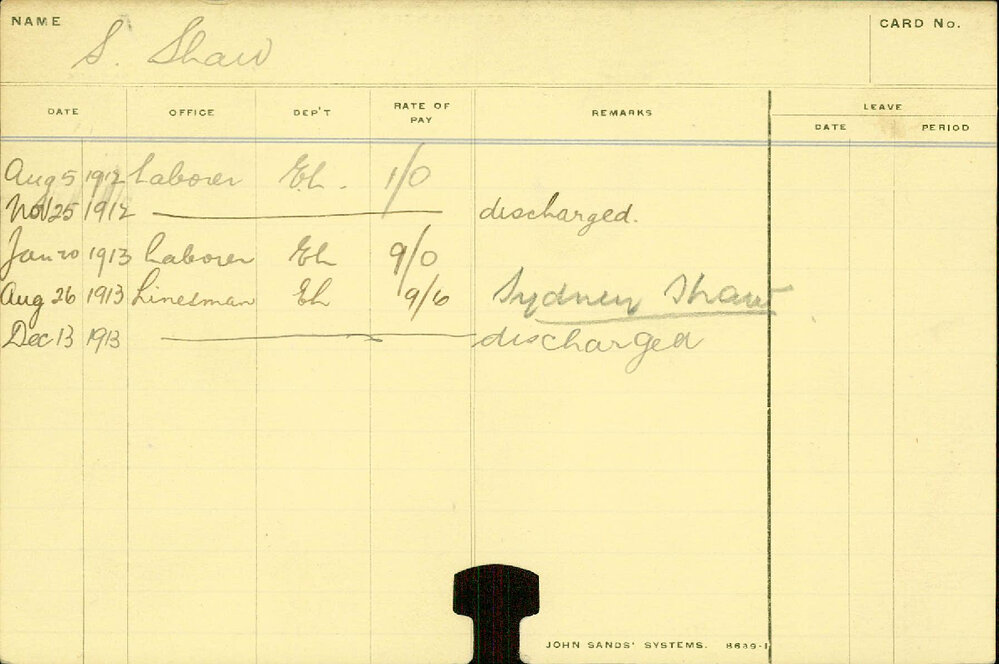 NAME S. Shaw CARD No.
DATE OFFICE DEP'T RATE OF PAY REMARKS LEAVE
DATE PERIOD
Aug 5 1912 Laborer Eh. 1/0
Nov 25 1912 discharged.
Jan 20 1913 Laborer Eh 9/0
Aug 26 1913 Linesman Eh 9/6 Sydney Shaw
Dec 13 1913 discharged
JOHN SANDS' SYSTEMS. 8639-1